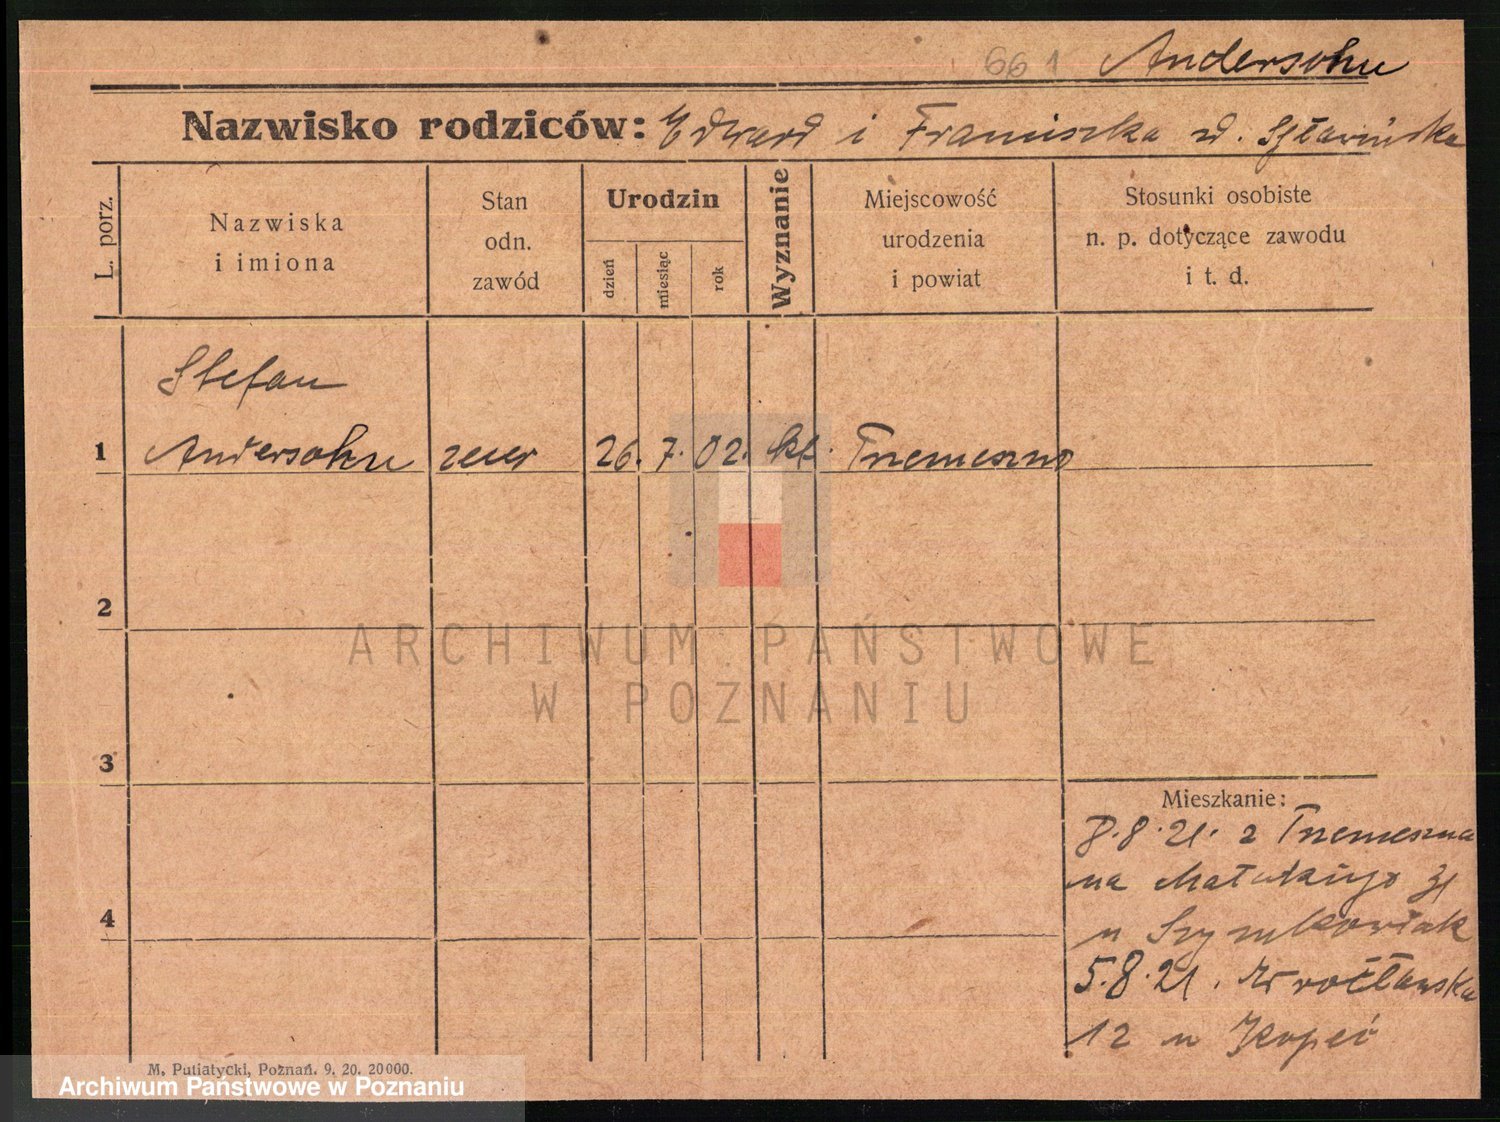 661 Andersohn
Nazwisko rodziców: Edward i Franciszka zd.
L. porz.
Nazwiska
i imiona
Stan
odn.
zawód
Urodzin
dzień
miesiąc
rok
Wyznanie
Miejscowość
urodzenia
i powiat
Stosunki osobiste
n. p. dotyczące zawodu
i t. d.
Stefan
1 Andersohn zecer 26. 7. 02. kt. Trzemeszno
2
3
4
Mieszkanie:
8.8.21. z Trzemeszna
na
u Szymkowiak
5.8.21. Wrocławska
12 u
M. Putiatycki, Poznań. 9. 20. 20000.
ARCHIWUM PAŃSTWOWE
W POZNANIU
Archiwum Państwowe w Poznaniu